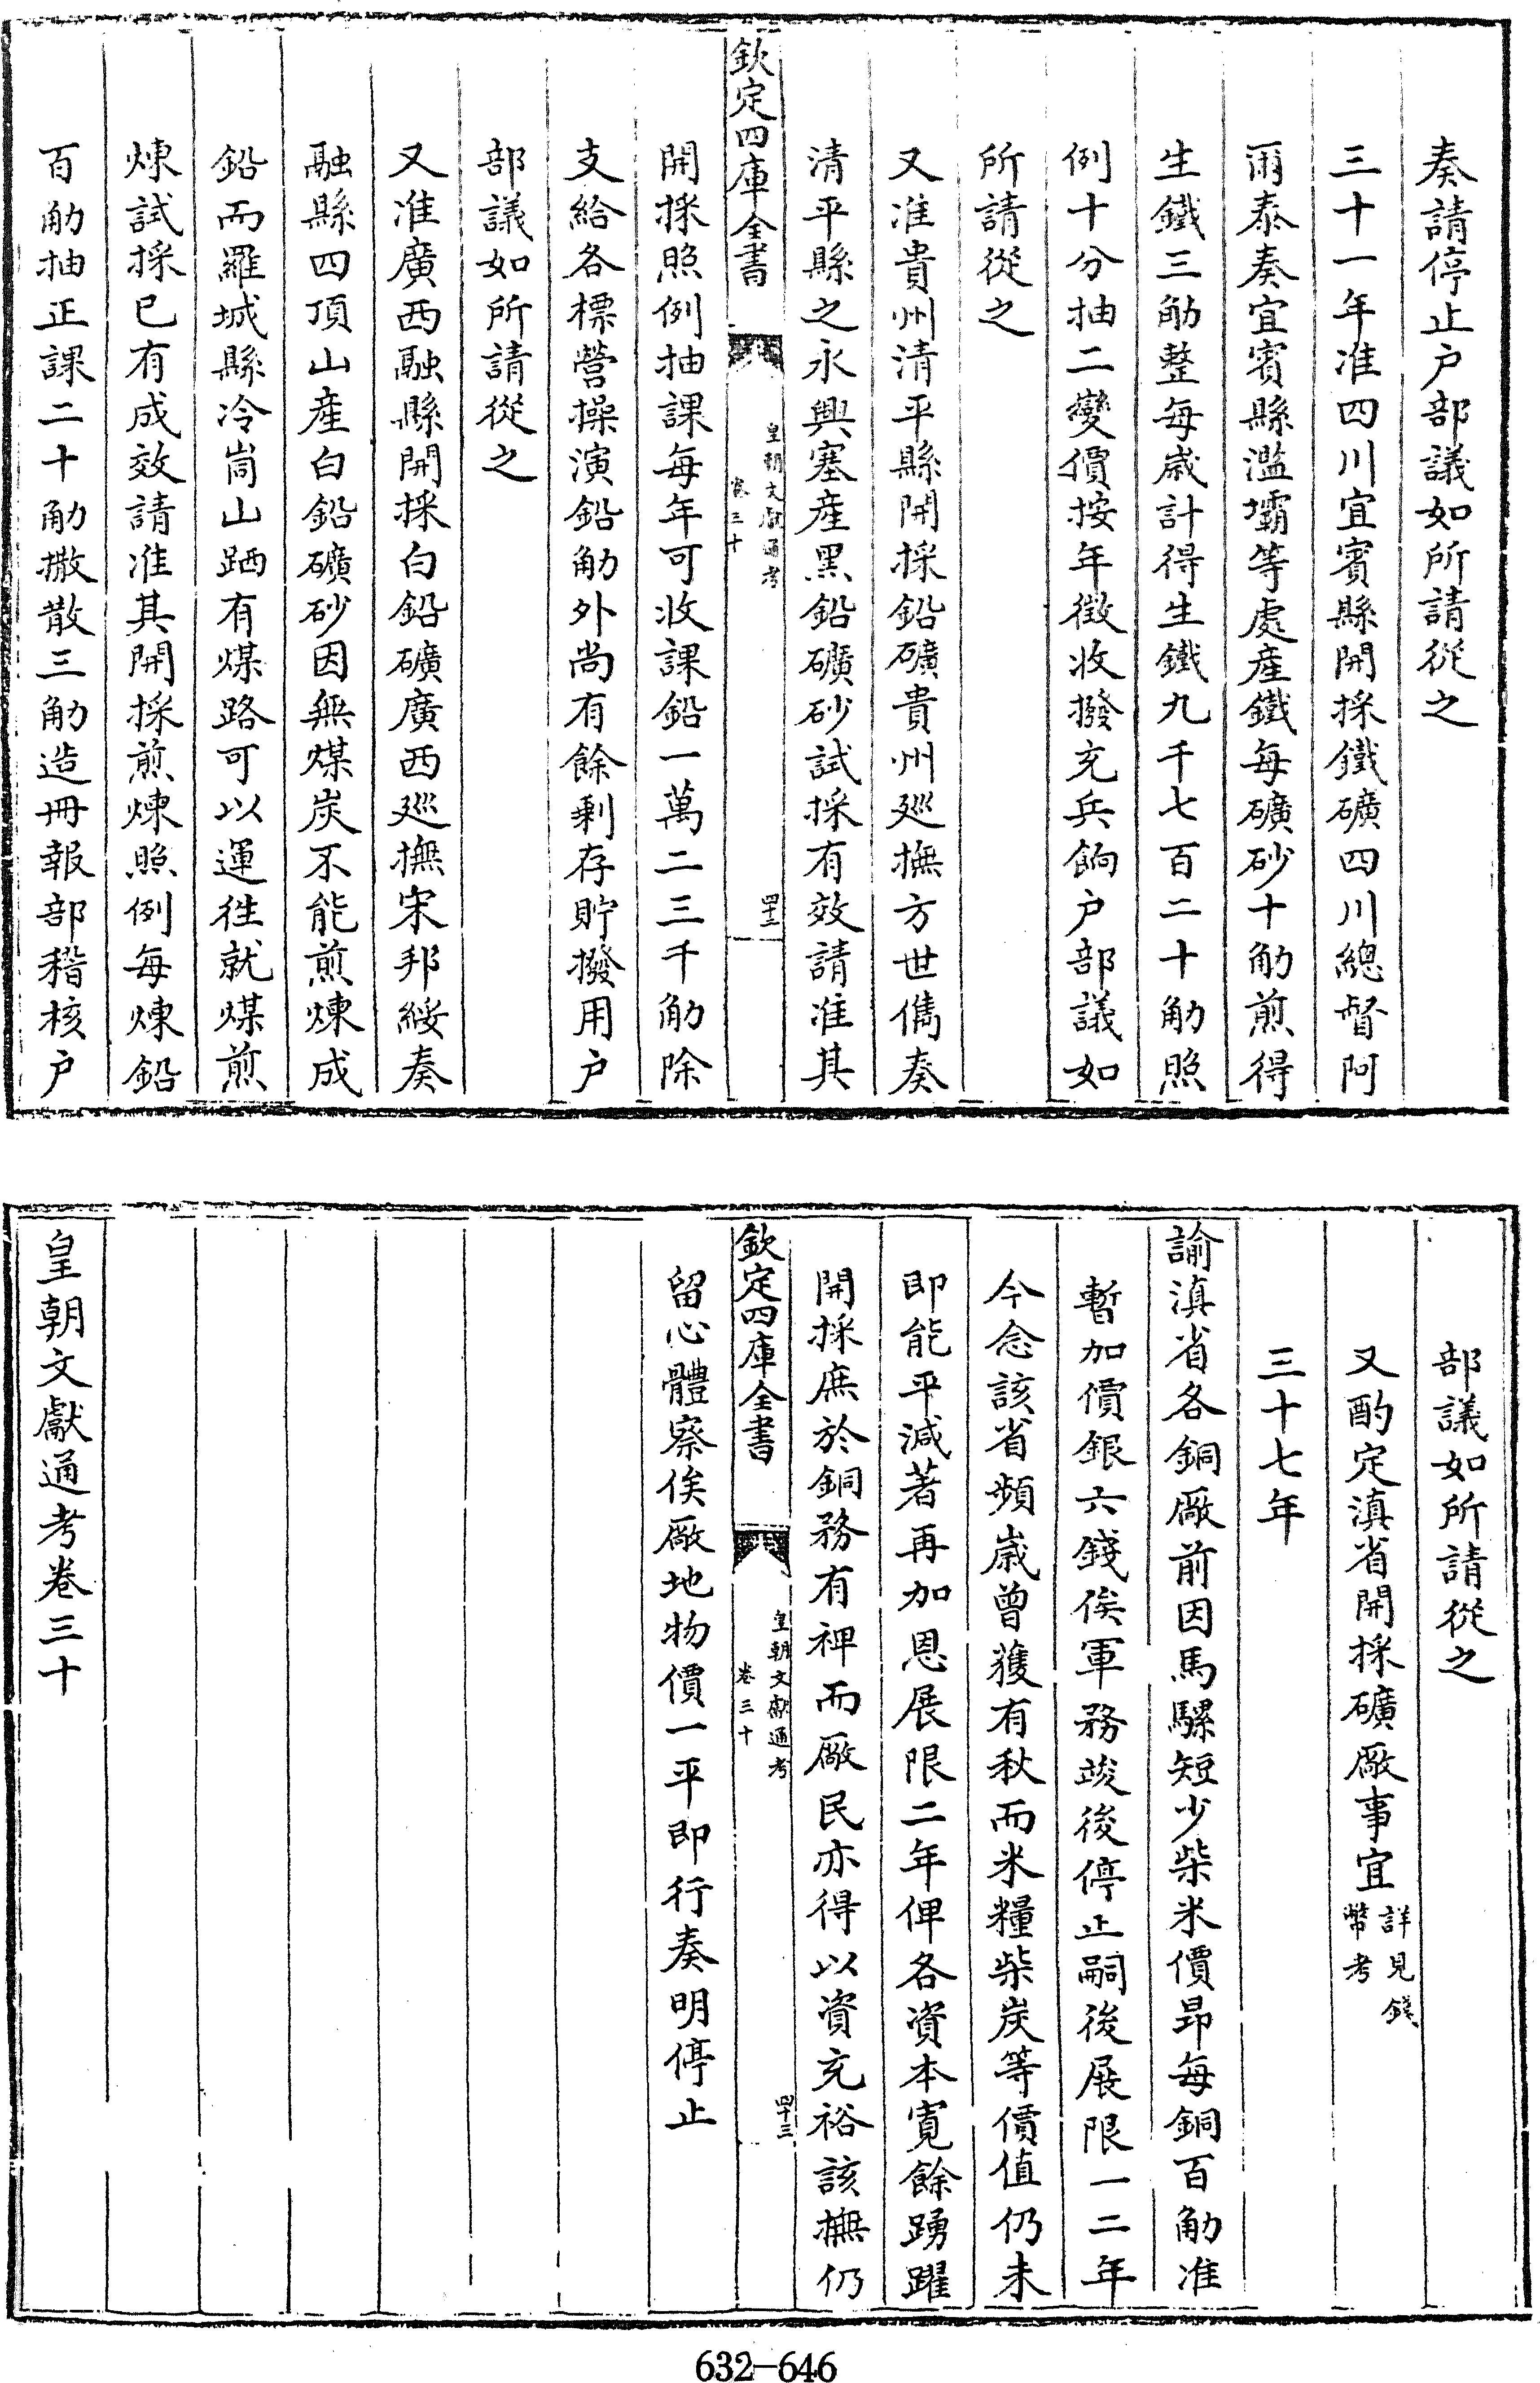 奏請停止户部議如所請從之
三十一年准四川宜賓縣開採鐵礦四川總督阿
爾泰奏宜賓縣濫壩等處産鐵每礦砂十觔煎得
生鐵三觔整每歳計得生鐵九千七百二十觔照
例十分抽二變價按年徴收撥充兵餉户部議如
所請從之
又准貴州清平縣開採鉛礦貴州廵撫方世儁奏
清平縣之永興塞産黑鉛礦砂試採有效請准其
欽定四庫全書
皇朝文獻通考
卷三十
四十二
開採照例抽課每年可收課鉛一萬二三千觔除
支給各標營操演鉛觔外尚有餘剩存貯撥用户
部議如所請從之
又准廣西融縣開採白鉛礦廣西廵撫宋邦綏奏
融縣四頂山産白鉛礦砂因無煤炭不能煎煉成
鉛而羅城縣冷崗山跴有煤路可以運徃就煤煎
煉試採已有成效請准其開採煎煉照例每煉鉛
百觔抽正課二十觔撒散三觔造冊報部稽核户
部議如所請從之
又酌定滇省開採礦厰事宜詳見錢
幣考
三十七年
諭滇省各銅厰前因馬騾短少柴米價昂每銅百觔准
暫加價銀六錢俟軍務竣後停止嗣後展限一二年
今念該省頻歳曾獲有秋而米糧柴炭等價值仍未
即能平減著再加恩展限二年俾各資本寛餘踴躍
開採庶於銅務有禆而厰民亦得以資充裕該撫仍
欽定四庫全書
皇朝文獻通考
卷三十
四十三
留心體察俟厰地物價一平即行奏明停止
皇朝文獻通考卷三十
632-646